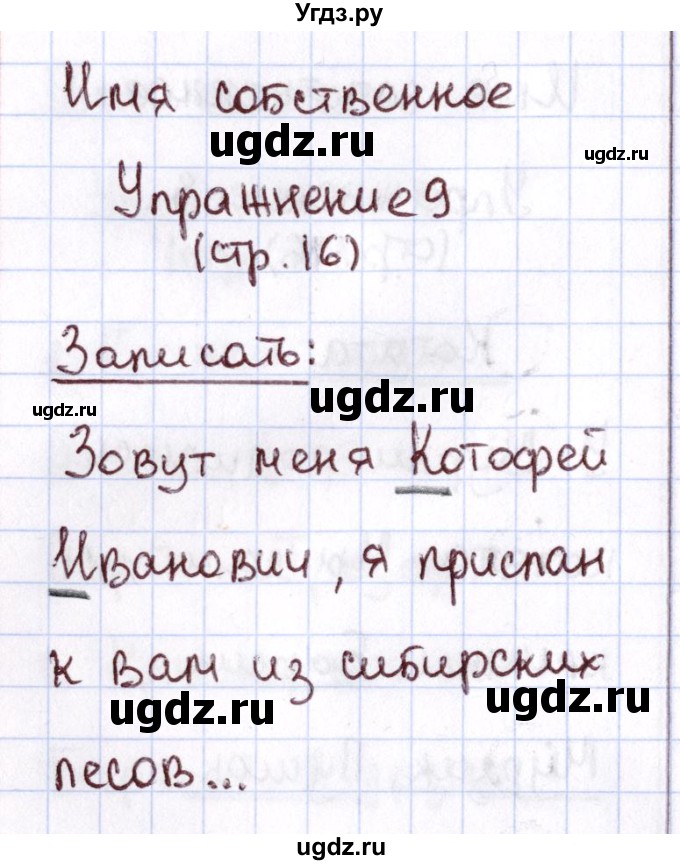 Угдз.ру
Имя собственное
ugdz.ru
ugdz.ru
Упражнение 9
(стр. 16)
Записать:
ugdz.ru
ugdz.ru
Зовут меня Котофей
Иванович, я прислан
к вам из сибирских
ugdz.ru
ugdz.ru
лесов...
ugdz.ru